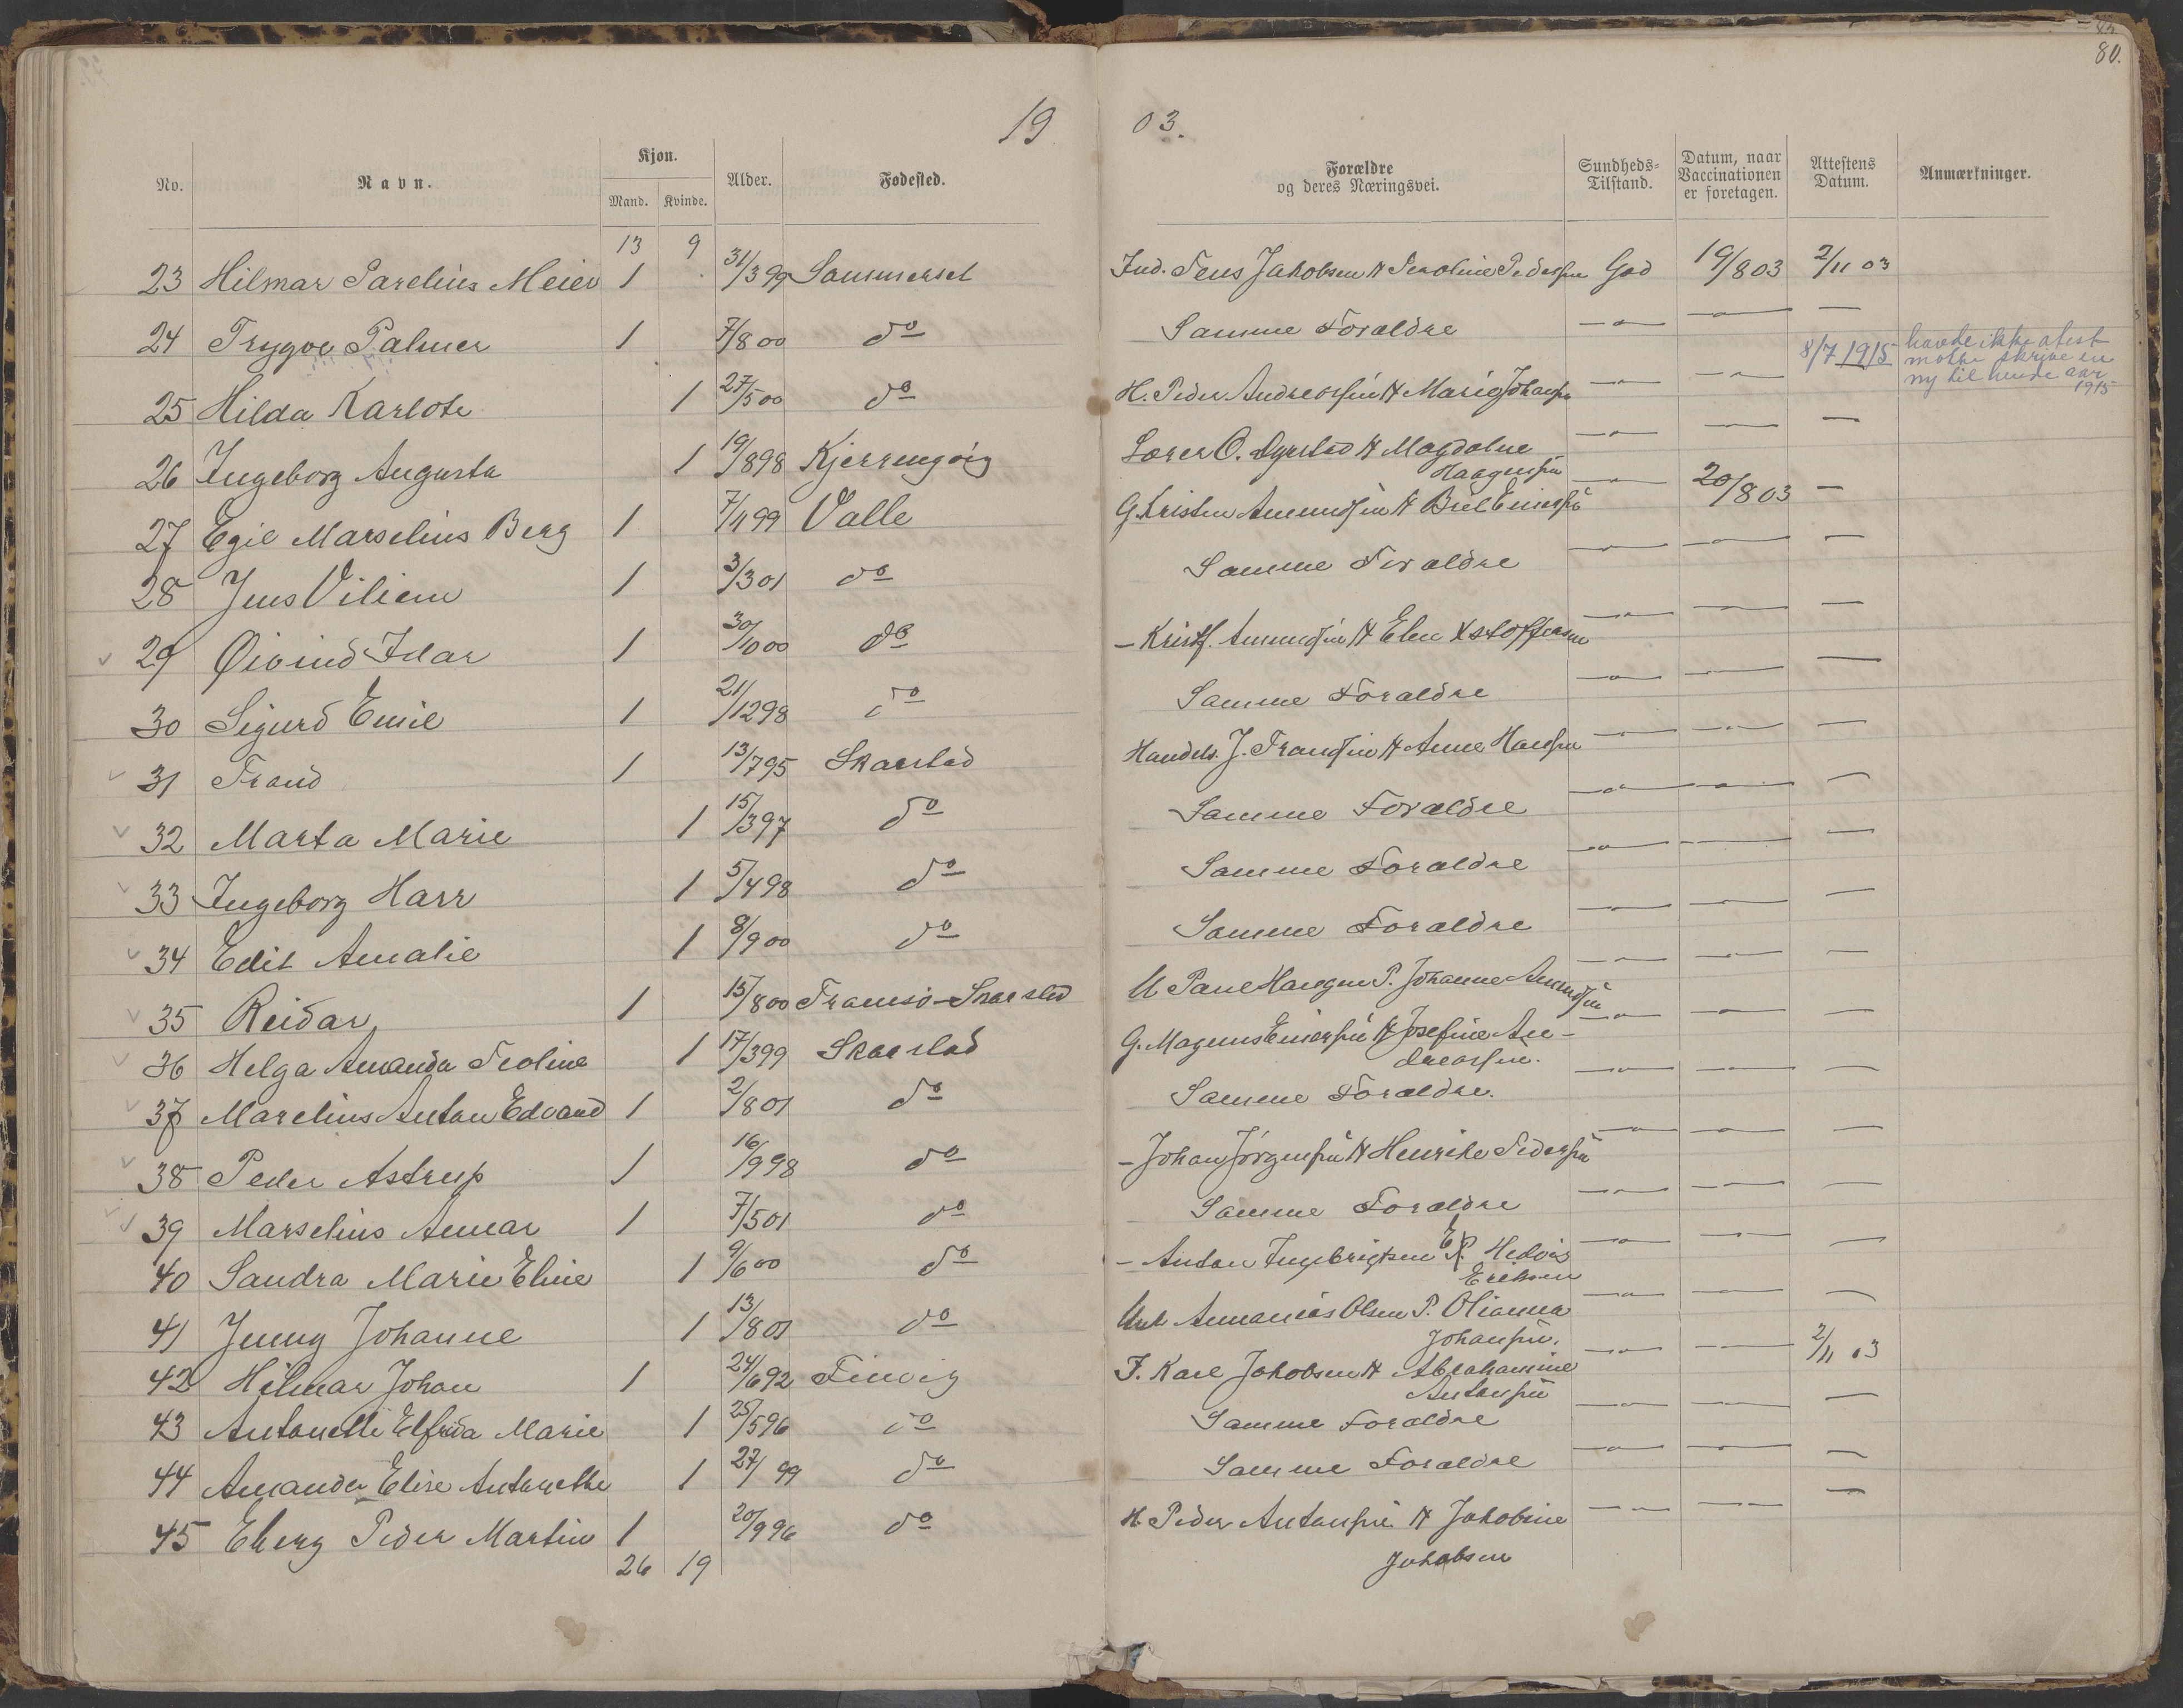 80.
19 03.
No. Navn. Kjøn. Mand. Kvinde. Alder. Fødested. Forældre og deres Næringsvei. Sundheds-Tilstand. Datum, naar Vaccinationen er foretagen. Attestens Datum. Anmærkninger.
13 9
23 Hilmar Parelius Meier 1 31/3 99 Sommerset Ind. Jens Jakobsen H Peroline Pedersen God 19/8 03 2/11 03
24 Trygve Palmer 1 7/8 00 do Samme Forældre — " — — " — —
25 Hilda Karlote 1 27/5 00 do H. Peder Andreassen H Marie Johansen — " — — " — 8/7 1915 havde ikke atest
motte skrive en
ny til hende aar
1915
26 Ingeborg Augusta 1 19/8 98 Kjerringøig Lærer O. Dyrstad H Magdalne — " — — " — —
Haagensen
27 Egil Marselius Berg 1 7/11 99 Valle G. Kristen Amundsen H Bril Einersen — " — 20/8 03 —
28 Jens Viliem 1 3/3 01 do Samme Forældre — " — — " — —
29 Øivind Idar 1 30/10 00 do — Kristf. Amundsen H Elen Kristoffersen — " — — " — —
30 Sigurd Emil 1 21/12 98 do Samme Forældre — " — — " — —
31 Trand 1 13/7 95 Skarstad Handels. J. Trandsen H Anne Hansen — " — — " — —
32 Marta Marie 1 15/3 97 do Samme Forældre — " — — " — —
33 Ingeborg Harr 1 5/4 98 do Samme Forældre — " — — " — —
34 Edit Amalie 1 8/9 00 do Samme Forældre — " — — " — —
35 Reidar 1 15/8 00 Tromsø-Skarstad U Paul Hansgen P. Johanne Amundsen — " — — " — —
36 Helga Amanda Teoline 1 17/3 99 Skarstad G. Magnus Einersen H Josefine An- — " — — " — —
dreassen.
37 Marelius Anton Edvard 1 2/8 01 do Samme Forældre. — " — — " — —
38 Peder Astrup 1 16/9 98 do — Johan Jørgensen H Henrike Pedersen — " — — " — —
39 Marselius Anmar 1 7/5 01 do Samme Forældre — " — — " — —
40 Sandra Marie Eline 1 9/6 00 do — Anton Ingebrigtsen E. P. Hedvig — " — — " — —
Eriksen
41 Jenny Johanne 1 13/8 01 do Ung Annanias Olsen P. Olianna — " — — " — —
Johansen.
42 Hilmar Johan 1 24/6 92 Finvig I. Karl Jakobsen H Abrahamine — " — — " — 2/11 03
Antonsen
43 Antonette Elfrida Marie 1 25/5 96 do Samme Forældre — " — — " — —
44 Amanda Elise Antonette 1 27/ 99 do Samme Forældre — " — — " — —
45 Eberg Peder Martin 1 20/9 96 do H Peder Antonsen H Jakobine — " — — " — —
Jakobsen
26 19